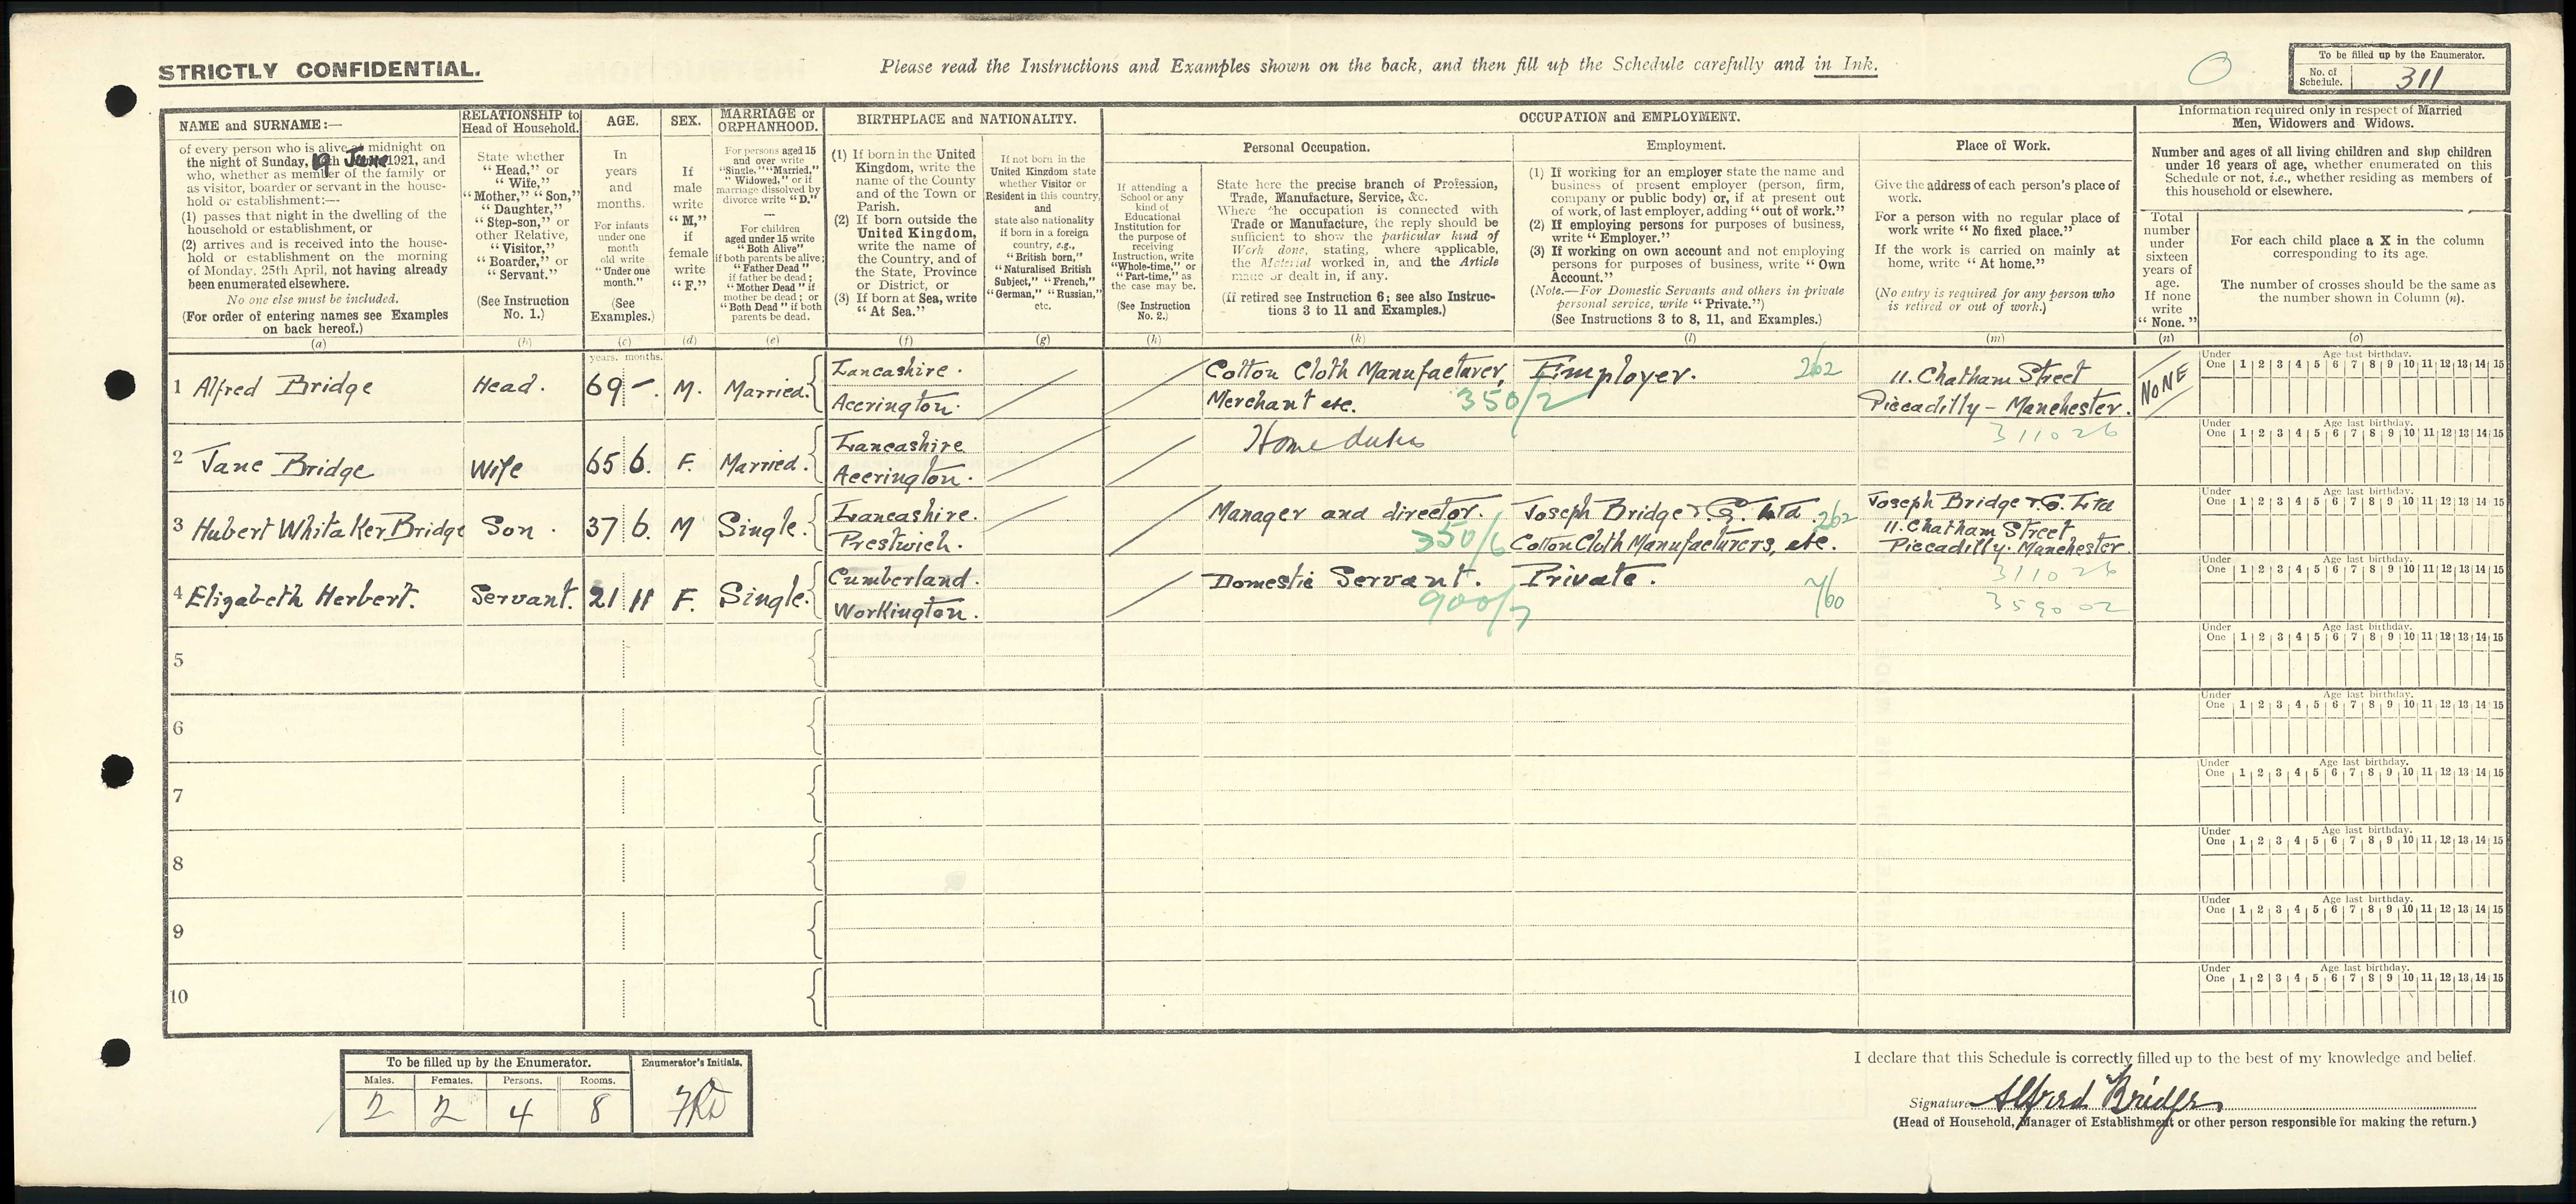 STRICTLY CONFIDENTIAL.
Please read the Instructions and Examples shown on the back, and then fill up the Schedule carefully and in Ink.
To be filled up by the Enumerator.
No. of Schedule. 311
NAME and SURNAME:—
of every person who is alive at midnight on
the night of Sunday, 19 June 1921, and
who, whether as member of the family or
as visitor, boarder or servant in the house-
hold or establishment:—
(1) passes that night in the dwelling of the
household or establishment, or
(2) arrives and is received into the house-
hold or establishment on the morning
of Monday, 25th April, not having already
been enumerated elsewhere.
No one else must be included.
(For order of entering names see Examples
on back hereof.)
(a)
RELATIONSHIP to
Head of Household.
State whether
"Head," or
"Wife,"
"Mother," "Son,"
"Daughter,"
"Step-son," or
other Relative,
"Visitor,"
"Boarder," or
"Servant."
(See Instruction
No. 1.)
(b)
AGE.
In
years
and
months.
For infants
under one
month
old write
"Under one
month."
(See
Examples.)
(c)
SEX.
If
male
write
"M,"
if
female
write
"F."
(d)
MARRIAGE or
ORPHANHOOD.
For persons aged 15
and over write
"Single," "Married,"
"Widowed," or if
marriage dissolved by
divorce write "D."
—
For children
aged under 15 write
"Both Alive"
if both parents be alive;
"Father Dead"
if father be dead;
"Mother Dead" if
mother be dead; or
"Both Dead" if both
parents be dead.
(e)
BIRTHPLACE and NATIONALITY.
(1) If born in the United
Kingdom, write the
name of the County
and of the Town or
Parish.
(2) If born outside the
United Kingdom,
write the name of
the Country, and of
the State, Province
or District, or
(3) If born at Sea, write
"At Sea."
(f)
If not born in the
United Kingdom state
whether Visitor or
Resident in this country,
and
state also nationality
if born in a foreign
country, e.g.,
"British born,"
"Naturalised British
Subject," "French,"
"German," "Russian,"
etc.
(g)
OCCUPATION and EMPLOYMENT.
If attending a
School or any
kind of
Educational
Institution for
the purpose of
receiving
Instruction, write
"Whole-time," or
"Part-time," as
the case may be.
(See Instruction
No. 2.)
(h)
Personal Occupation.
State here the precise branch of Profession,
Trade, Manufacture, Service, &c.
Where the occupation is connected with
Trade or Manufacture, the reply should be
sufficient to show the particular kind of
Work done, stating, where applicable,
the Material worked in, and the Article
made or dealt in, if any.
(If retired see Instruction 6; see also Instruc-
tions 3 to 11 and Examples.)
(k)
Employment.
(1) If working for an employer state the name and
business of present employer (person, firm,
company or public body) or, if at present out
of work, of last employer, adding "out of work."
(2) If employing persons for purposes of business,
write "Employer."
(3) If working on own account and not employing
persons for purposes of business, write "Own
Account."
(Note.—For Domestic Servants and others in private
personal service, write "Private.")
(See Instructions 3 to 8, 11, and Examples.)
(l)
Place of Work.
Give the address of each person's place of
work.
For a person with no regular place of
work write "No fixed place."
If the work is carried on mainly at
home, write "At home."
(No entry is required for any person who
is retired or out of work.)
(m)
Information required only in respect of Married
Men, Widowers and Widows.
Number and ages of all living children and step children
under 16 years of age, whether enumerated on this
Schedule or not, i.e., whether residing as members of
this household or elsewhere.
Total
number
under
sixteen
years of
age.
If none
write
"None."
(n)
For each child place a X in the column
corresponding to its age.
The number of crosses should be the same as
the number shown in Column (n).
(o)
years. months.
1 Alfred Bridge Head. 69 – M. Married. Lancashire. Accrington. Cotton Cloth Manufacturer, Merchant etc. 350/2 Employer. 262 11. Chatham Street Piccadilly – Manchester. NONE
Under One 1 2 3 4 5 6 7 8 9 10 11 12 13 14 15 Age last birthday.
311026
2 Jane Bridge Wife 65 6. F. Married. Lancashire Accrington. Home duties
Under One 1 2 3 4 5 6 7 8 9 10 11 12 13 14 15 Age last birthday.
3 Hubert Whitaker Bridge Son. 37 6. M Single. Lancashire. Prestwich. Manager and director. 350/6 Joseph Bridge & Co. Ltd. 262 Cotton Cloth Manufacturers, etc. Joseph Bridge & Co. Ltd 11. Chatham Street Piccadilly. Manchester
Under One 1 2 3 4 5 6 7 8 9 10 11 12 13 14 15 Age last birthday.
311026
4 Elizabeth Herbert. Servant. 21 11 F. Single. Cumberland. Workington. Domestic Servant. 900/7 Private. 359002
Under One 1 2 3 4 5 6 7 8 9 10 11 12 13 14 15 Age last birthday.
5
Under One 1 2 3 4 5 6 7 8 9 10 11 12 13 14 15 Age last birthday.
6
Under One 1 2 3 4 5 6 7 8 9 10 11 12 13 14 15 Age last birthday.
7
Under One 1 2 3 4 5 6 7 8 9 10 11 12 13 14 15 Age last birthday.
8
Under One 1 2 3 4 5 6 7 8 9 10 11 12 13 14 15 Age last birthday.
9
Under One 1 2 3 4 5 6 7 8 9 10 11 12 13 14 15 Age last birthday.
10
Under One 1 2 3 4 5 6 7 8 9 10 11 12 13 14 15 Age last birthday.
To be filled up by the Enumerator.
Males. Females. Persons. Rooms.
2 2 4 8
Enumerator's Initials.
I declare that this Schedule is correctly filled up to the best of my knowledge and belief.
Signature Alfred Bridge
(Head of Household, Manager of Establishment or other person responsible for making the return.)